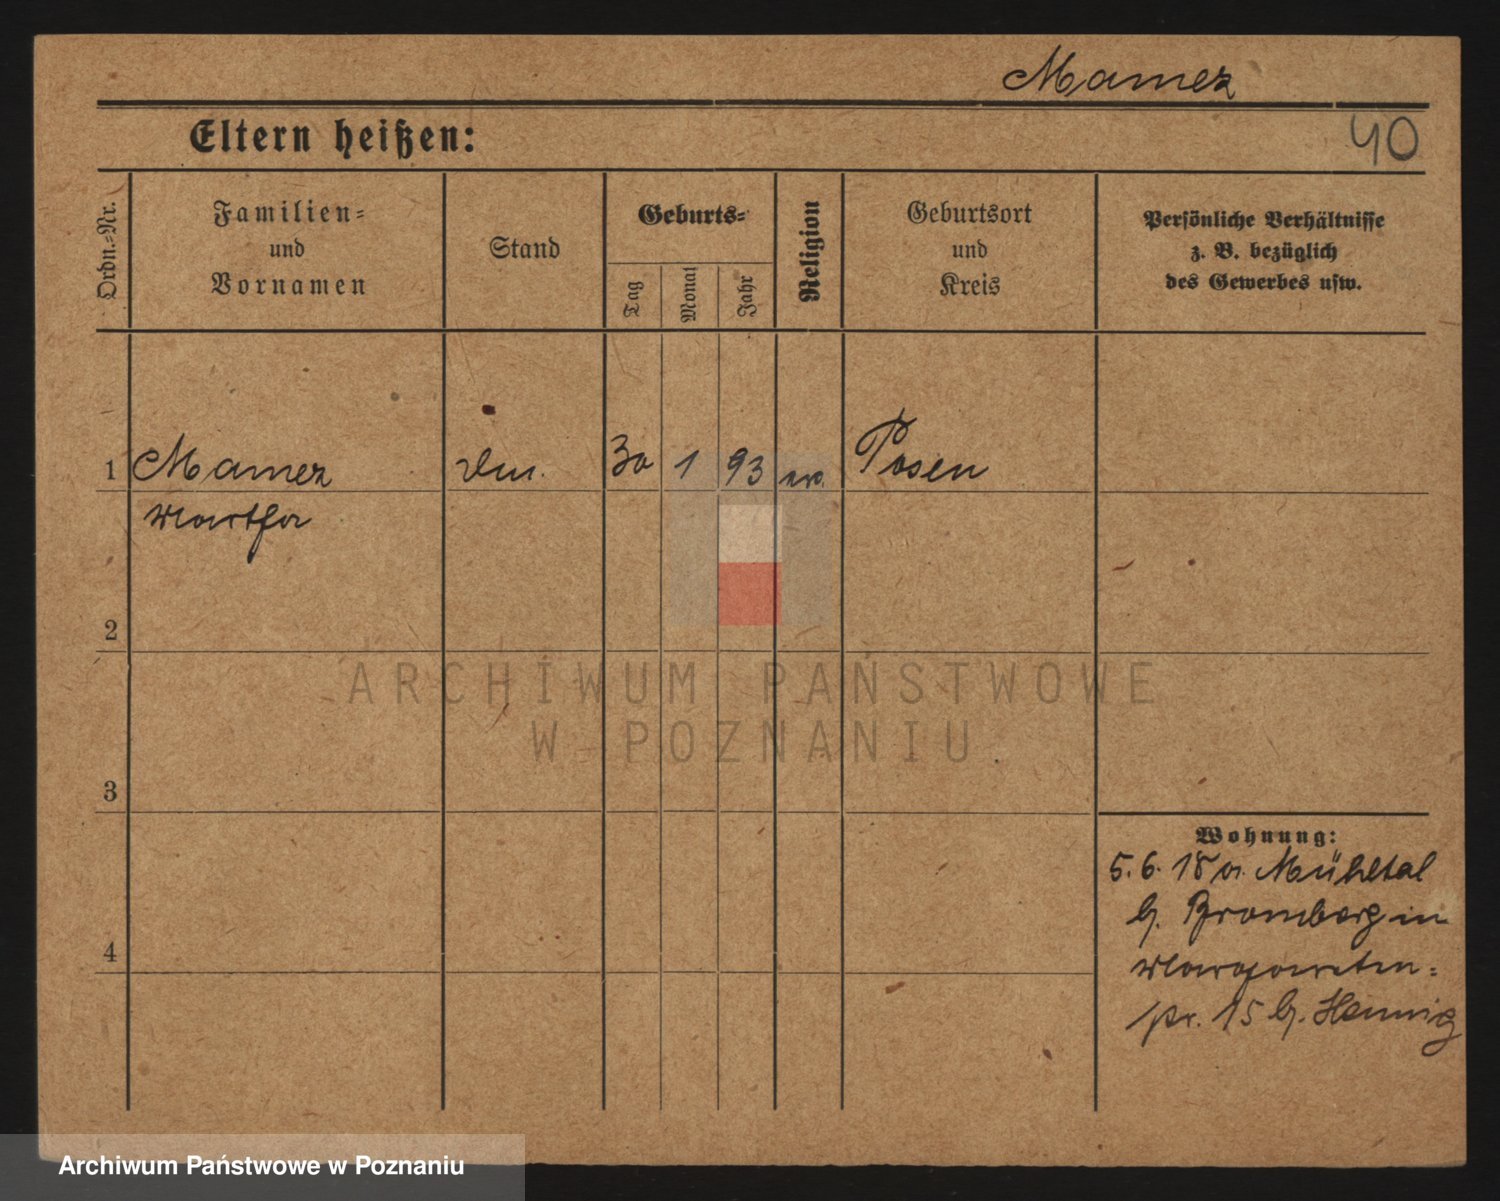 Mamez
Eltern heißen:
40
Ordn.=Nr.
Familien=
und
Vornamen
Stand
Geburts=
Tag
Monat
Jahr
Religion
Geburtsort
und
Kreis
Persönliche Verhältnisse
z. B. bezüglich
des Gewerbes usw.
1 Mamez 30 1 93 Posen
Martha
2
ARCHIWUM PAŃSTWOWE
W POZNANIU
3
Wohnung:
5. 6. 18 a. Mühltal
b. Bromberg in
4
Margareten=
str. 15 b. Hennig
Archiwum Państwowe w Poznaniu